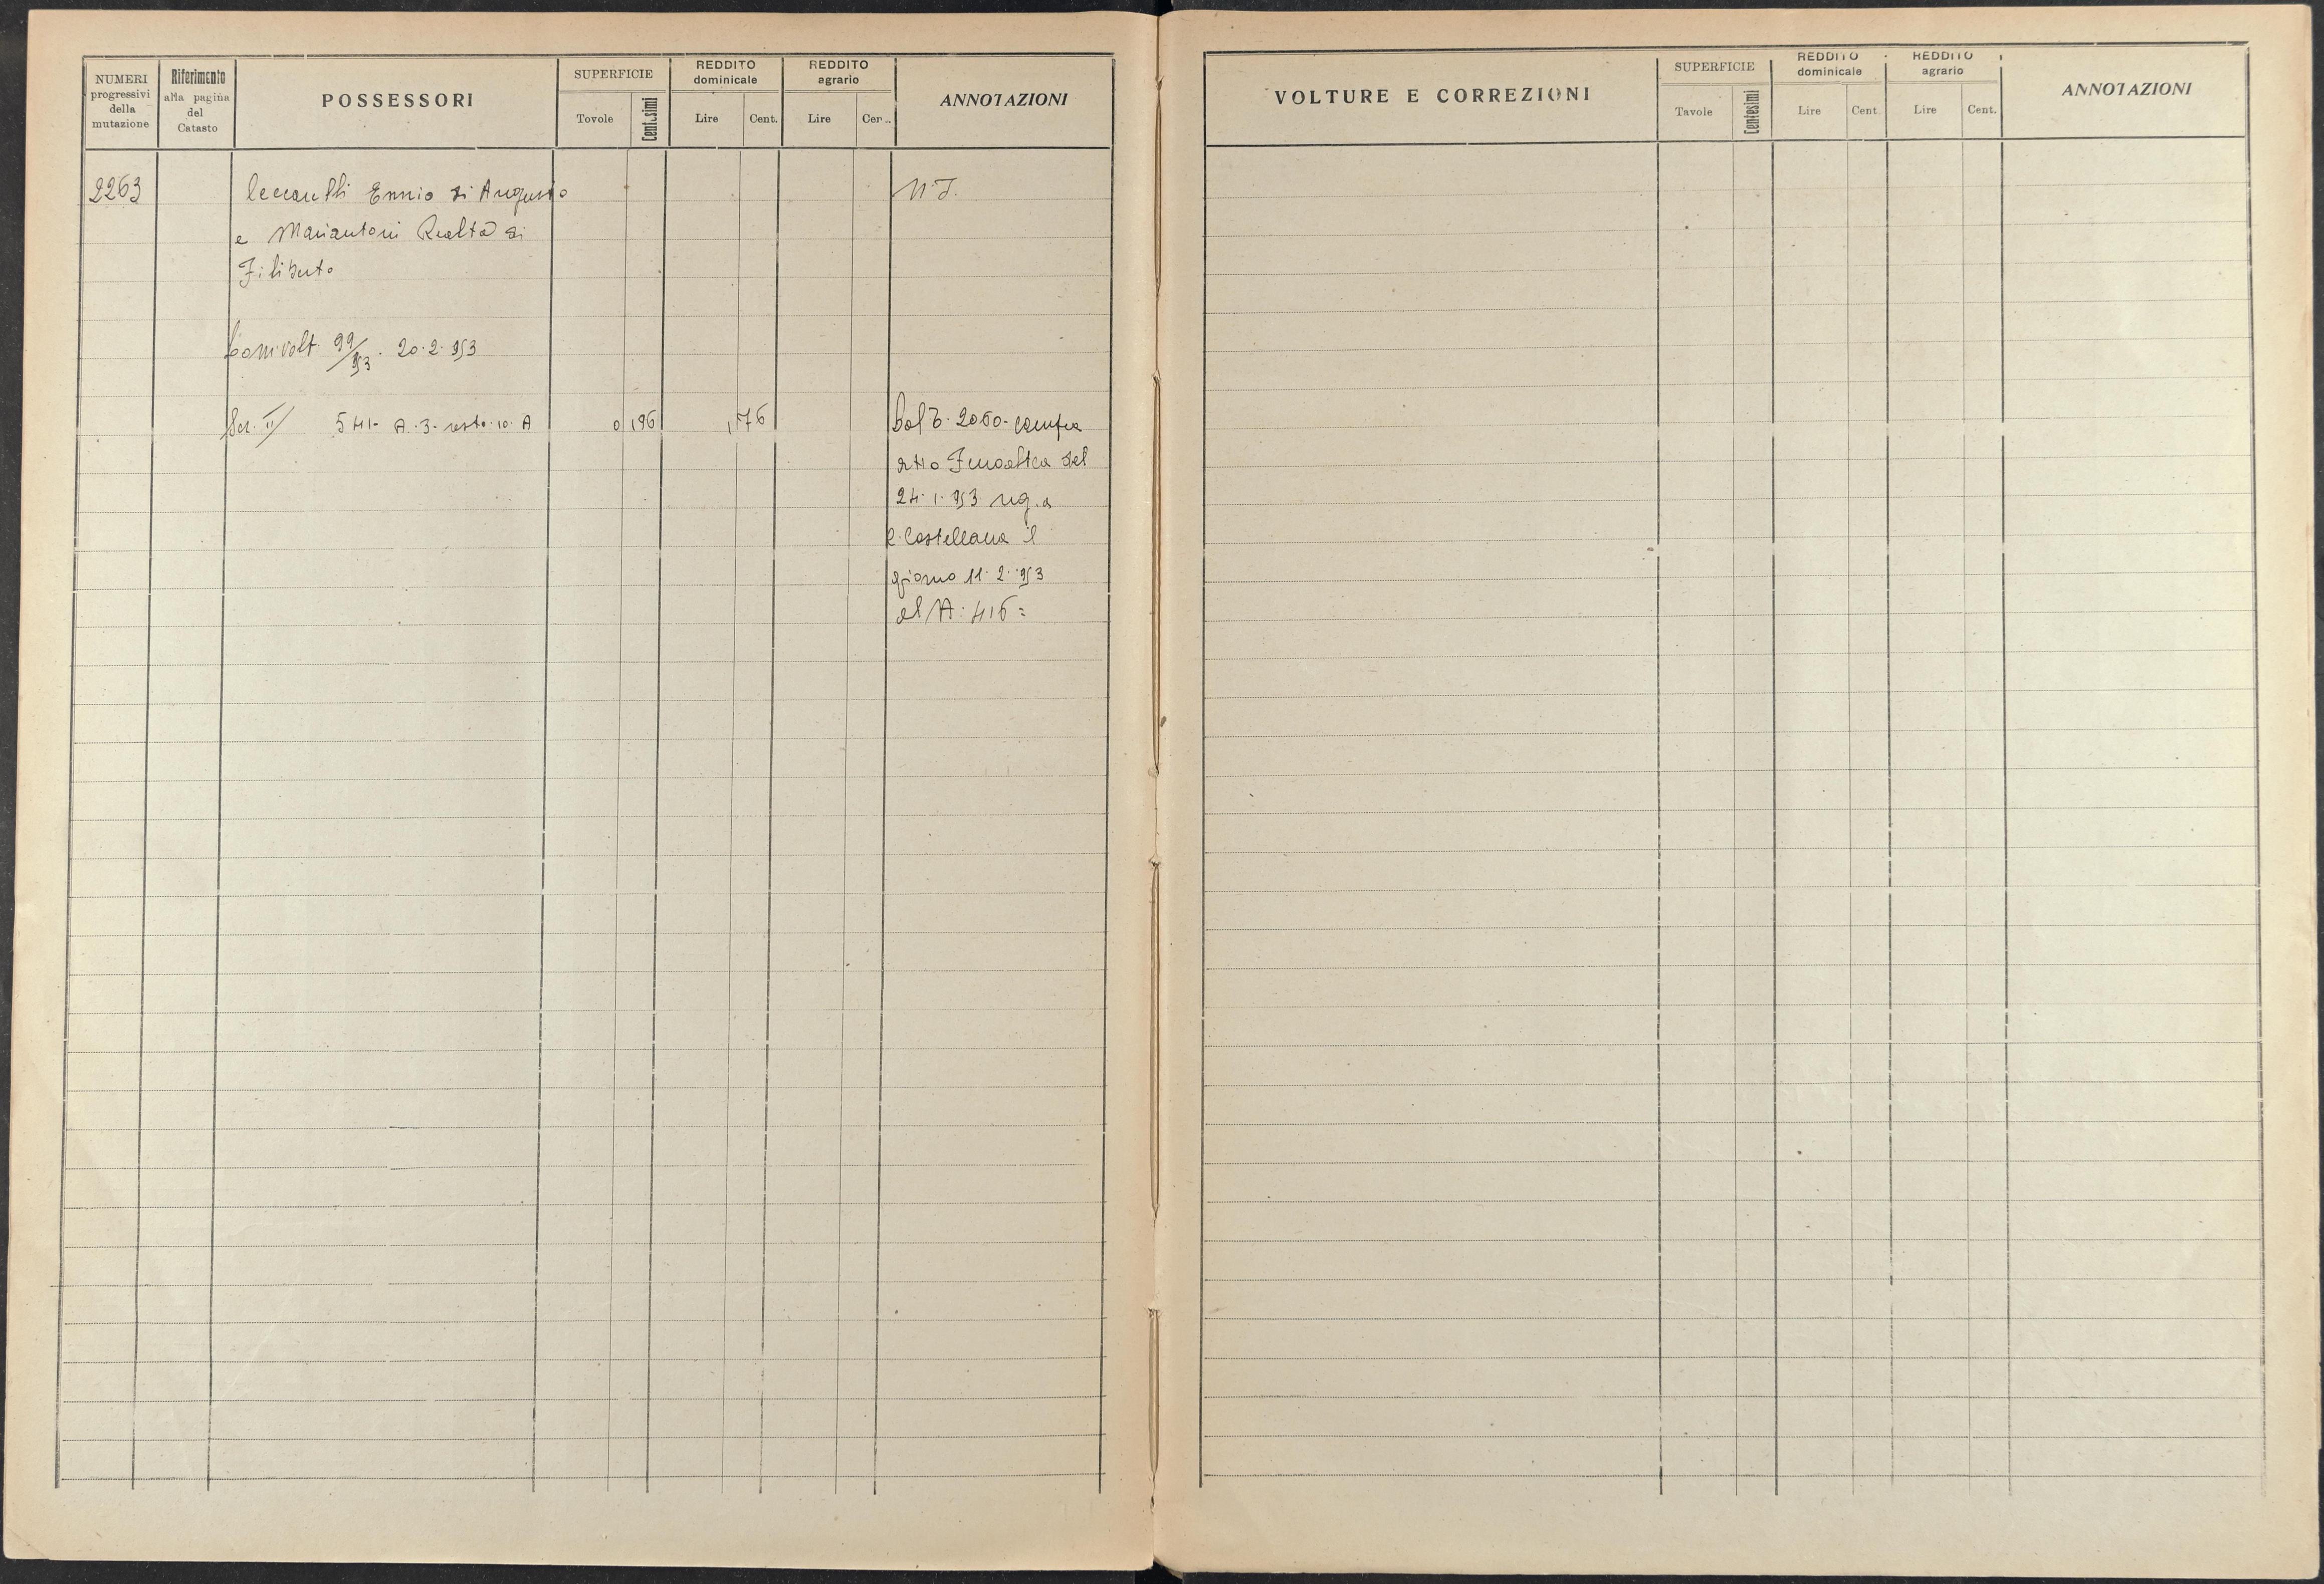 NUMERI progressivi della mutazione
Riferimento alla pagina del Catasto
POSSESSORI
SUPERFICIE
Tovole
Cent.simi
REDDITO dominicale
Lire
Cent.
REDDITO agrario
Lire
Cer..
ANNOTAZIONI
2263
Ennio di Augusto
N.T.
e Mariantoni Realta di
Filiberto
Com. volt. 99/953. 20.2.953
Sez. II/ 541- A.3- resto 10. A
0,196
,176
2060. compra
atto del
24.1.953 reg. a
C. Castellana il
giorno 11.2.953
al N: 416=
VOLTURE E CORREZIONI
SUPERFICIE
Tavole
Centesimi
REDDITO dominicale
Lire
Cent.
REDDITO agrario
Lire
Cent.
ANNOTAZIONI